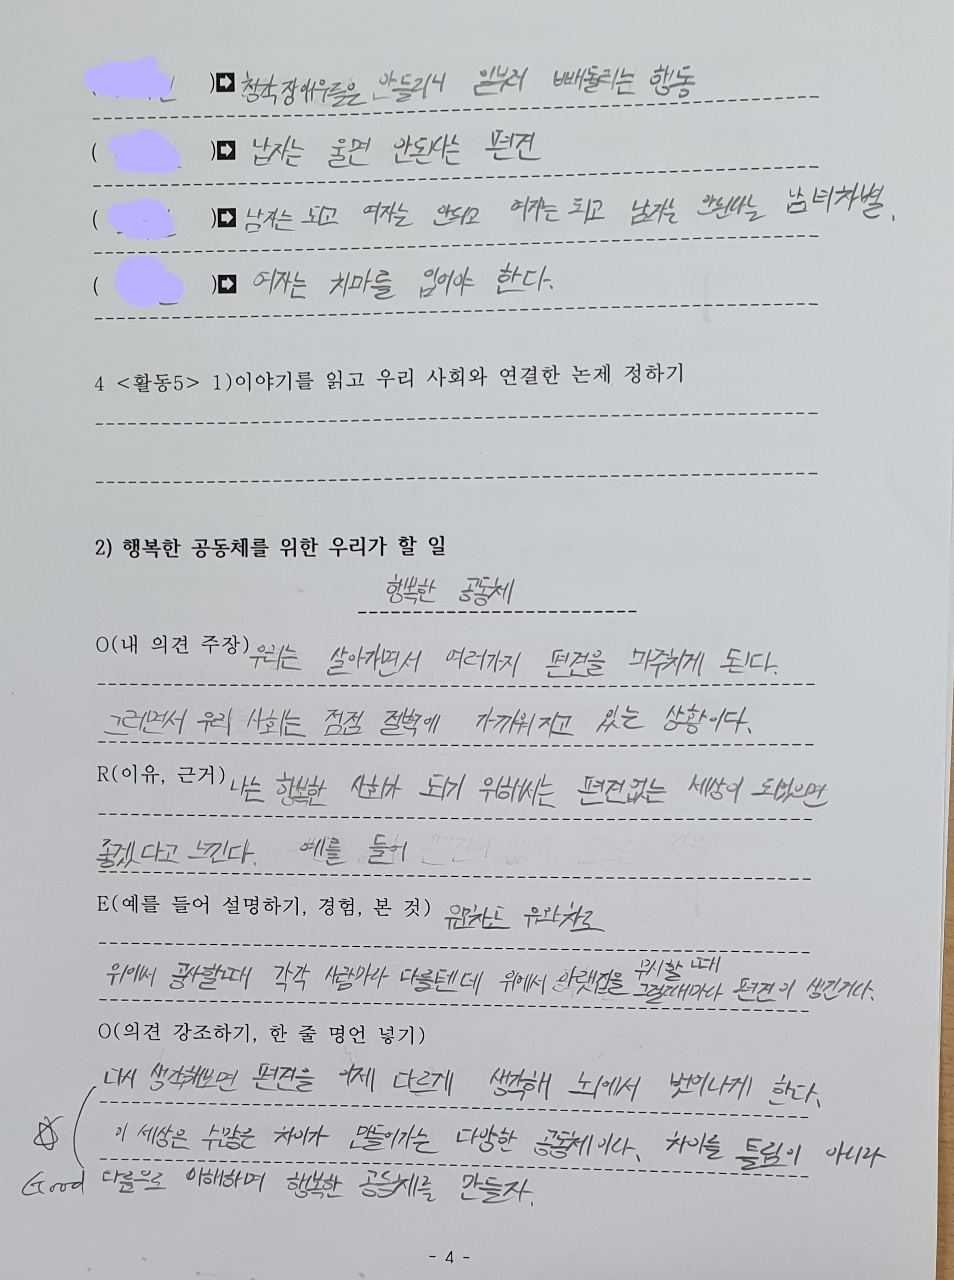 ( )➡ 청각장애우들은 안들리니 일부러 빼돌리는 행동
( )➡ 남자는 울면 안된다는 편견
( )➡ 남자는 되고 여자는 안되고 여자는 되고 남자는 안된다는 남녀차별.
( )➡ 여자는 치마를 입어야 한다.
4 <활동5> 1)이야기를 읽고 우리 사회와 연결한 논제 정하기
2) 행복한 공동체를 위한 우리가 할 일
행복한 공동체
O(내 의견 주장) 우리는 살아가면서 여러가지 편견을 마주치게 된다.
그러면서 우리 사회는 점점 절벽에 가까워지고 있는 상황이다.
R(이유, 근거) 나는 행복한 사회가 되기 위해서는 편견없는 세상이 되었으면
좋겠다고 느낀다. 예를 들어
E(예를 들어 설명하기, 경험, 본 것)
무시할 때
위에서 공사할때 각각 사람마다 다를텐데 위에서 아랫집을 그럴때마다 편견이 생긴거다.
O(의견 강조하기, 한 줄 명언 넣기)
다시 생각해보면 편견을 이제 다르게 생각해 뇌에서 벗어나게 한다.
이 세상은 수많은 차이가 만들어가는 다양한 공동체이다. 차이를 틀림이 아니라
Good 다름으로 이해하며 행복한 공동체를 만들자.
- 4 -